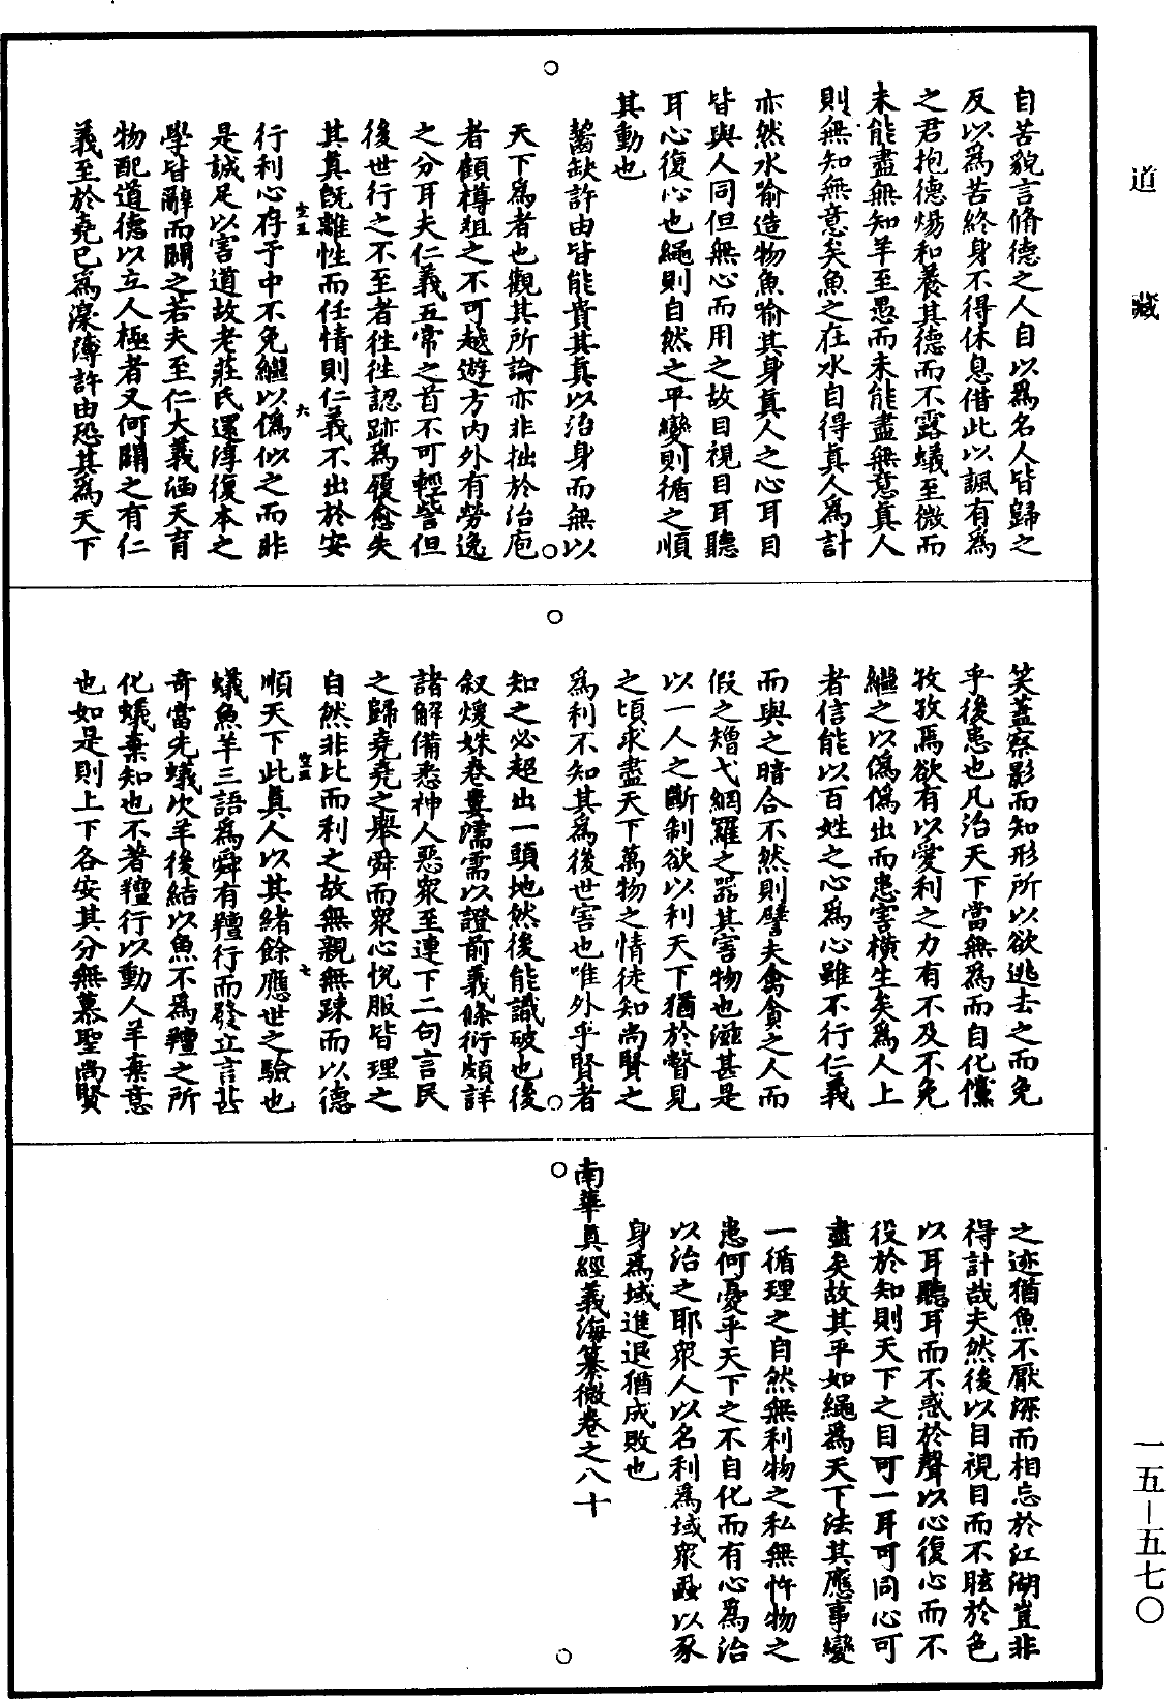 道藏
自苦貌言脩德之人自以爲名人皆歸之
反以爲苦終身不得休息借此以諷有爲
之君抱德煬和養其德而不露蟻至微而
未能盡無知羊至愚而未能盡無意真人
則無知無意矣魚之在水自得真人爲計
亦然水喻造物魚喻其身真人之心耳目
皆與人同但無心而用之故目視目耳聽
耳心復心也繩則自然之平變則循之順
其動也
齧缺許由皆能貴其真以治身而無以
天下爲者也觀其所論亦非拙於治庖
者顧樽俎之不可越遊方內外有勞逸
之分耳夫仁義五常之首不可輕訾但
後世行之不至者往往認跡爲履愈失
其真旣離性而任情則仁義不出於安
行利心存乎中不免繼以僞似之而非
是誠足以害道故老莊氏還淳復本之
學皆辭而闢之若夫至仁大義涵天育
物配道德以立人極者又何闢之有仁
義至於堯已爲澆薄許由恐其爲天下
笑蓋察影而知形所以欲逃去之而免
乎後患也凡治天下當無爲而自化儻
孜孜焉欲有以愛利之力有不及不免
繼之以僞僞出而患害橫生矣爲人上
者信能以百姓之心爲心雖不行仁義
而與之暗合不然則譬夫禽貪之人而
假之矰弋網羅之器其害物也滋甚是
以一人之斷制欲以利天下猶於瞥見
之頃求盡天下萬物之情徒知尚賢之
爲利不知其爲後世害也唯外乎賢者
知之必超出一頭地然後能識破也後
叙煖姝卷婁濡需以證前義條衍頗詳
諸解備悉神人惡衆至連下二句言民
之歸堯堯之舉舜而衆心悅服皆理之
自然非比而利之故無親無踈而以德
順天下此真人以其緒餘應世之驗也
蟻魚羊三語爲舜有羶行而發立言甚
奇當先蟻次羊後結以魚不爲羶之所
化蟻棄知也不著羶行以動人羊棄意
也如是則上下各安其分無慕聖尚賢
之迹猶魚不厭深而相忘於江湖豈非
得計哉夫然後以目視目而不眩於色
以耳聽耳而不惑於聲以心復心而不
役於知則天下之目可一耳可同心可
盡矣故其平如繩爲天下法其應事變
一循理之自然無利物之私無忤物之
患何憂乎天下之不自化而有心爲治
以治之耶衆人以名利爲域衆蝨以豕
身爲域進退猶成敗也
南華真經義海纂微卷之八十
一五-五七〇